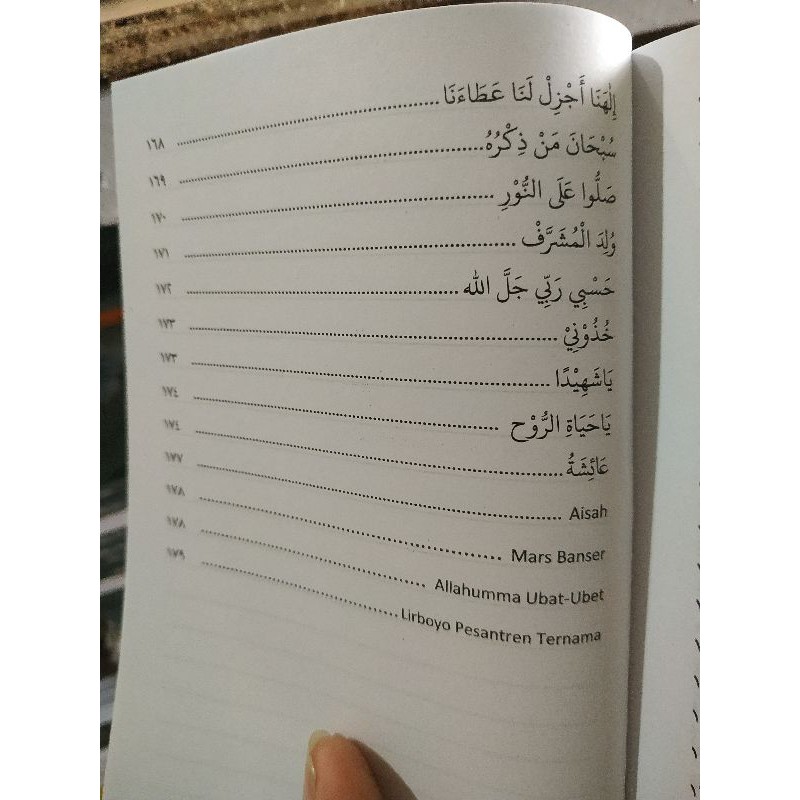 إِلٰهَنَا أَجْزِلْ لَنَا عَطَاءَنَا ........ ١٦٨
سُبْحَانَ مَنْ ذِكْرُهُ ........ ١٦٩
صَلُّوا عَلَى النُّوْرِ ........ ١٧٠
وُلِدَ الْمُشَرَّفْ ........ ١٧١
حَسْبِي رَبِّي جَلَّ الله ........ ١٧٢
خُذُوْنِيْ ........ ١٧٣
يَاشَهِيْدًا ........ ١٧٣
يَاحَيَاةِ الرُّوْح ........ ١٧٤
عَائِشَةُ ........ ١٧٤
Aisah ........ ١٧٧
Mars Banser ........ ١٧٨
Allahumma Ubat-Ubet ........ ١٧٨
Lirboyo Pesantren Ternama ........ ١٧٩